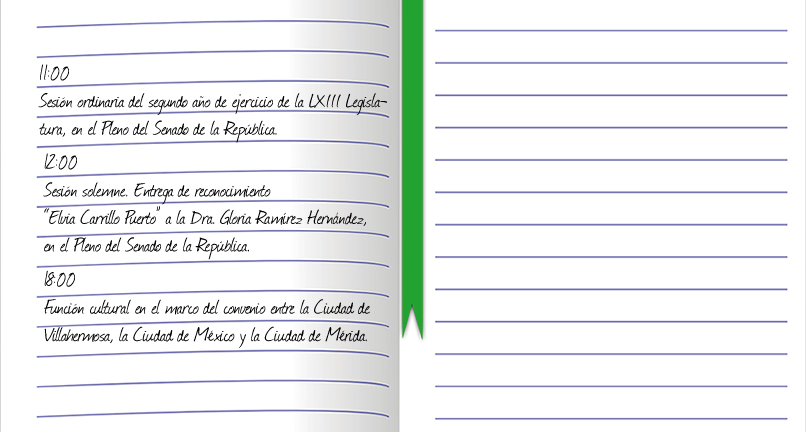 11:00
Sesión ordinaria del segundo año de ejercicio de la LXIII Legisla-
tura, en el Pleno del Senado de la República.
12:00
Sesión solemne. Entrega de reconocimiento
"Elvia Carrillo Puerto" a la Dra. Gloria Ramírez Hernández,
en el Pleno del Senado de la República.
18:00
Función cultural en el marco del convenio entre la Ciudad de
Villahermosa, la Ciudad de México y la Ciudad de Mérida.